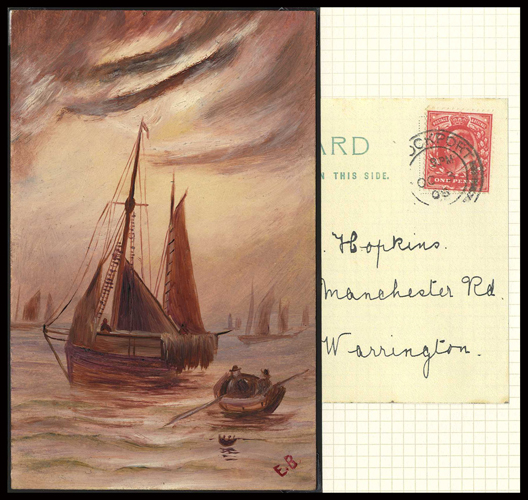 E.B
ARD
N THIS SIDE.
ONE PENNY
OCKPORT
. Hopkins.
Manchester Rd.
Warrington.